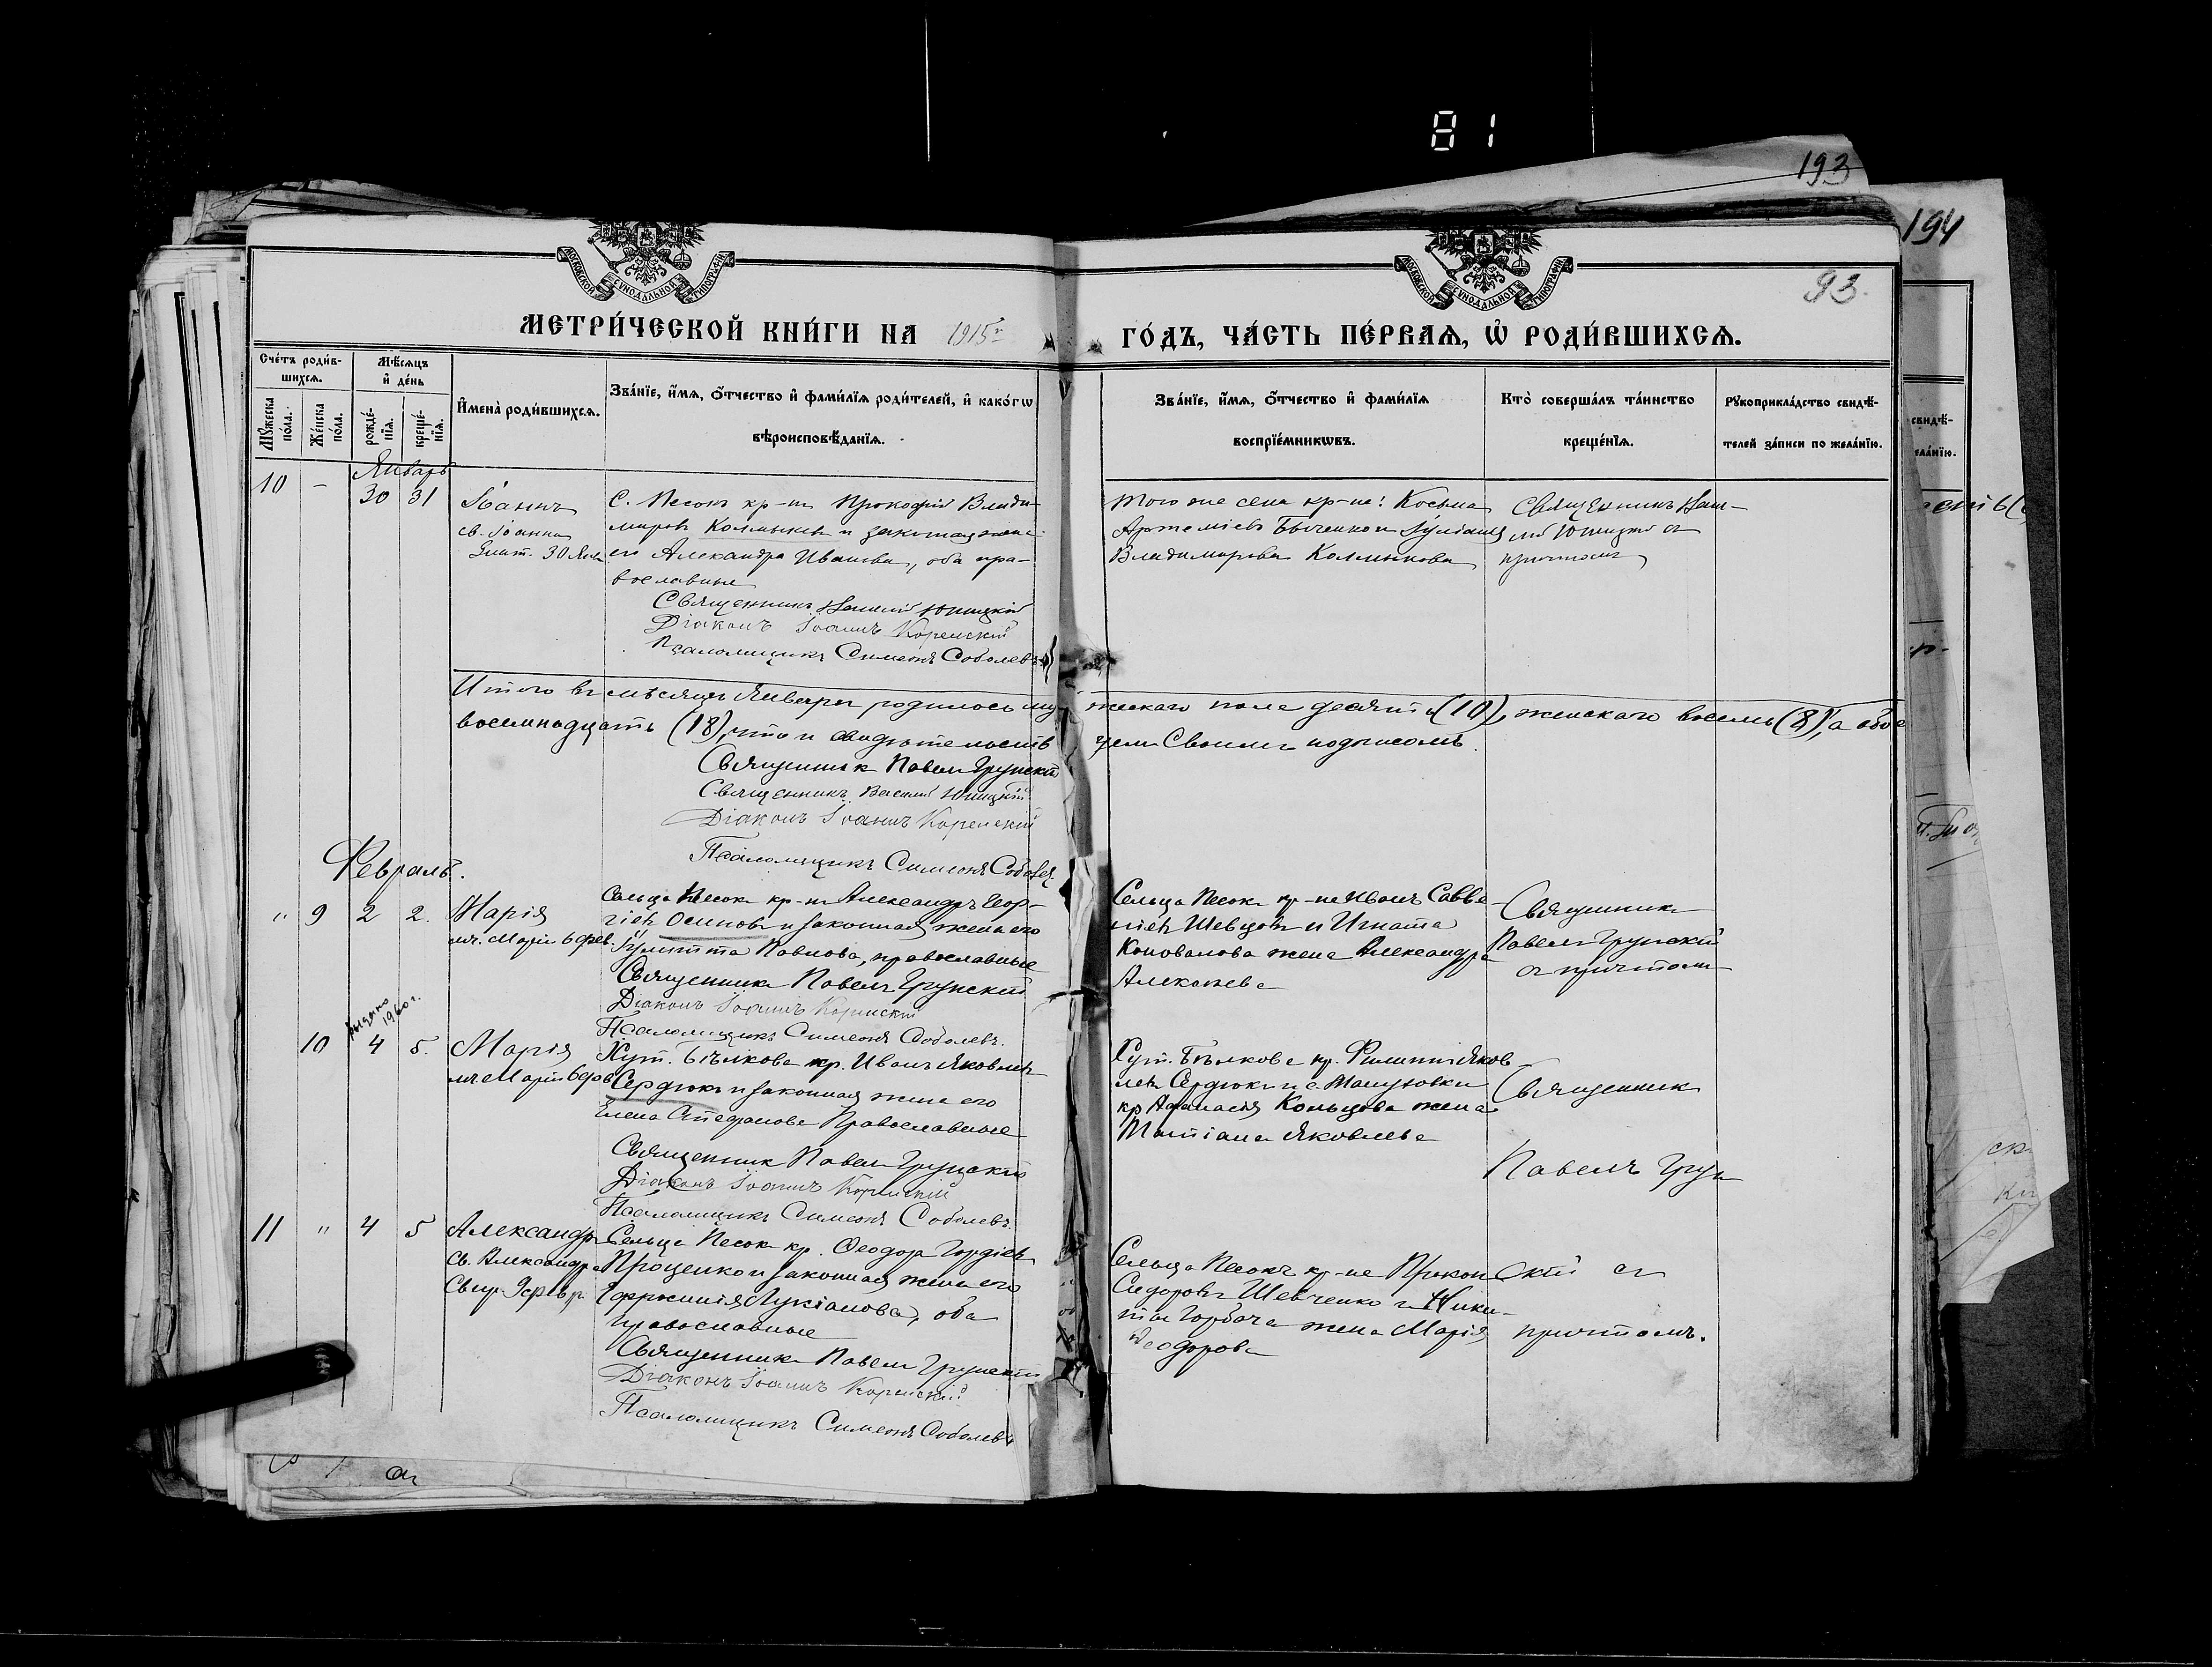 81
193
194
93.
МОСКОВСКОЙ СѴНОДАЛЬНОЙ ТИПОГРАФІИ
МОСКОВСКОЙ СѴНОДАЛЬНОЙ ТИПОГРАФІИ
МЕТРИ́ЧЕСКОЙ КНИ́ГИ НА 1915 г. ГО́ДЪ, ЧА́СТЬ ПЕ́РВАѦ, Ѡ҆ РОДИ́ВШИХСѦ.
Сче́тъ роди́в-
шихсѧ.
Мꙋ́жеска
по́ла.
Же́нска
по́ла.
Мѣ́сѧцъ
и҆ де́нь
рожде́-
нїѧ.
креще́-
нїѧ.
И҆мена̀ роди́вшихсѧ.
Зва́нїе, и҆́мѧ, ѻ҆́тчество и҆ фами́лїѧ роди́телей, и҆ како́гѡ
вѣроисповѣ́данїѧ.
Зва́нїе, и҆́мѧ, ѻ҆́тчество и҆ фами́лїѧ
воспрїе́мникѡвъ.
Кто̀ соверша́лъ та́инство
креще́нїѧ.
Рꙋкоприкла́дство свидѣ́-
телей за́писи по жела́нїю.
Январь
10 - 30 31
Іоаннъ
св. Іоанна
Злат. 30 Янв
С. Песокъ кр-нъ Прокофій Влади-
міровъ и законная жена
его Александра Иванова, оба пра-
вославные
Священникъ Василій Юницкій
Діаконъ Іоаннъ Коренскій
Псаломщикъ Симеонъ Соболевъ
того же села кр-не: Косьма
Артеміевъ и Іуліанія
Владимирова
Священникъ Васи-
лій Юницкій съ
причтомъ
Итого въ мѣсяцѣ Январѣ родилось мужескаго пола десять (10), женскаго восемь (8), а обое
восемнадцать (18), что и свидѣтельствуемъ своимъ подписомъ.
Священникъ Павелъ Грунскій
Священникъ Василій Юницкій
Діаконъ Іоаннъ Коренскій
Псаломщикъ Симеонъ Соболев
Февраль.
" 9 2 2.
Марія
мч. Маріи 6 фев.
Сельца Песокъ кр-нъ Александръ Геор-
гіевъ Осиповъ и законная жена его
Іулитта Павлова, православные
Священникъ Павелъ Грунскій
Діаконъ Іоаннъ Коренскій
Псаломщикъ Симеонъ Соболевъ.
Сельца Песокъ кр-не Иванъ Савве-
тіевъ Шевцовъ и Игната
Коновалова жена Александра
Алексеева
Священникъ
Павелъ Грунскій
съ причтомъ
выдано
1960 г.
10 4 5.
Марія
мч. Маріи 6 фев
Хут. Бѣлкова кр. Иванъ Яковлевъ
Сердюкъ и законная жена его
Елена Стефанова Православные
Священникъ Павелъ Грунскій
Діаконъ Іоаннъ Коренскій
Псаломщикъ Симеонъ Соболевъ.
Хут. Бѣлкова кр. Филиппъ Яков
левъ Сердюкъ и с.
кр Афанасія Кольцова жена
Татіана Яковлева
Священник
Павелъ Грун
11 " 4 5
Александръ
Св. Александра
9 февр.
Сельца Песокъ кр. Ѳеодоръ Гордіевъ
Проценко и законная жена его
Ефросинія Лукіанова, оба
православные
Священникъ Павелъ Грунскій
Діаконъ Іоаннъ Коренскій
Псаломщикъ Симеонъ Соболевъ
Сельца Песокъ кр-не Прокоп
Сидоровъ Шевченко и Ники-
ты Горбача жена Марія
Ѳеодорова
скій съ
причтомъ.
свидѣ́-
ела́нїю.